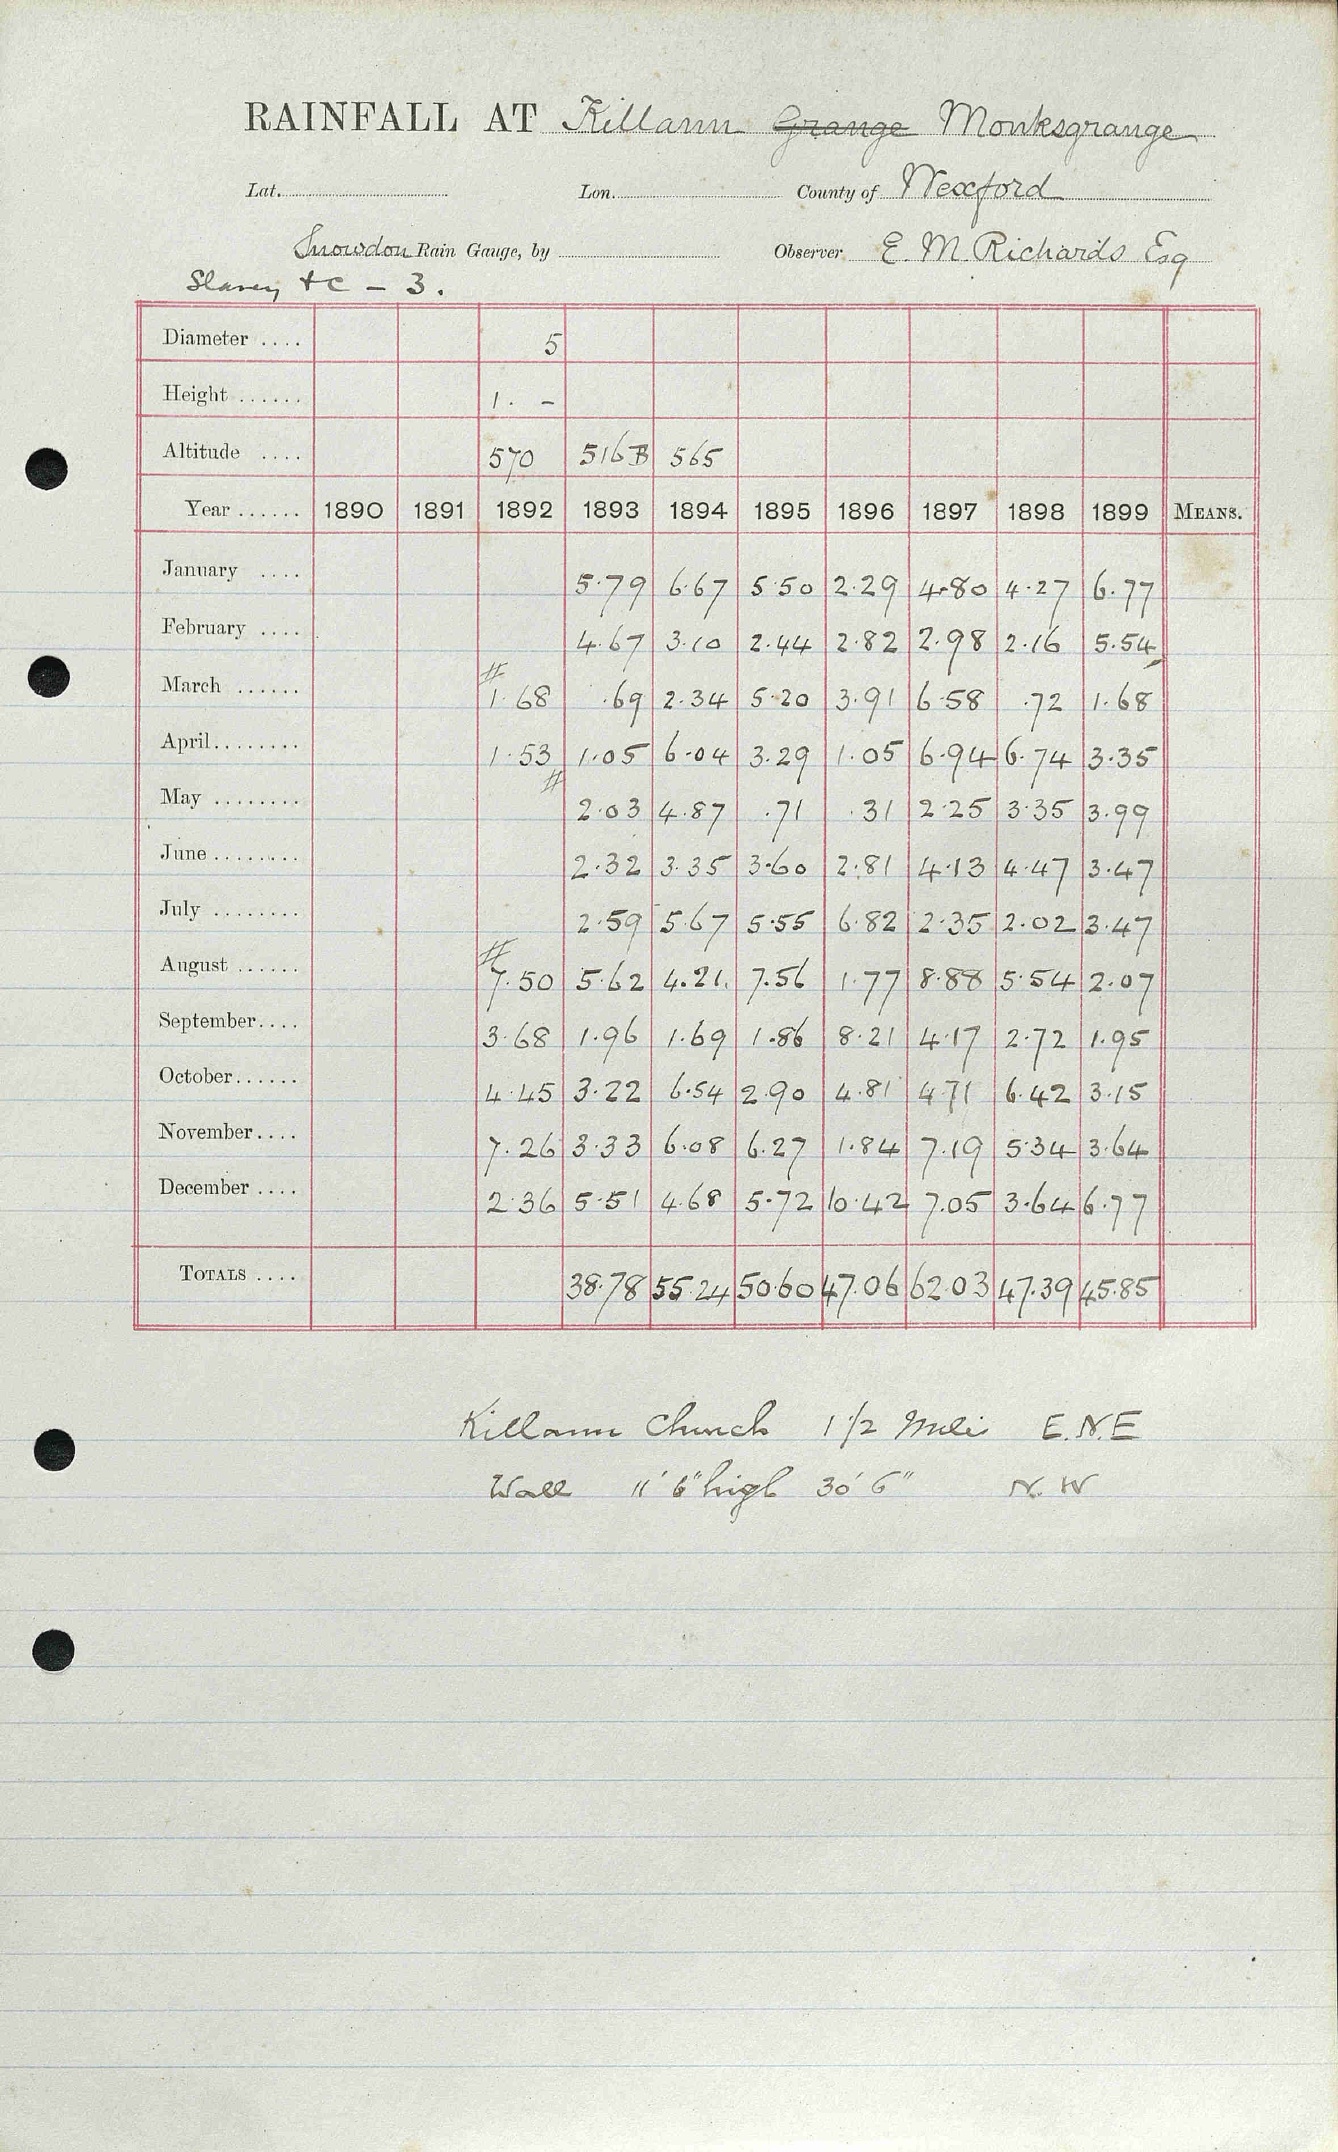 RAINFALL AT Killann Grange Monksgrange
Lat. Lon. County of Wexford
Snowdon Rain Gauge, by Observer E. M. Richards Esq
Slaney &c - 3.
Diameter .... 5
Height ...... 1. -
Altitude .... 570 516B 565
Year ...... 1890 1891 1892 1893 1894 1895 1896 1897 1898 1899 MEANS.
January .... 5.79 6.67 5.50 2.29 4.80 4.27 6.77
February .... 4.67 3.10 2.44 2.82 2.98 2.16 5.54
March ...... # 1.68 .69 2.34 5.20 3.91 6.58 .72 1.68
April........ 1.53 # 1.05 6.04 3.29 1.05 6.94 6.74 3.35
May ........ 2.03 4.87 .71 .31 2.25 3.35 3.99
June........ 2.32 3.35 3.60 2.81 4.13 4.47 3.47
July ........ 2.59 5.67 5.55 6.82 2.35 2.02 3.47
August ...... # 7.50 5.62 4.21 7.56 1.77 8.88 5.54 2.07
September.... 3.68 1.96 1.69 1.86 8.21 4.17 2.72 1.95
October...... 4.45 3.22 6.54 2.90 4.81 4.71 6.42 3.15
November.... 7.26 3.33 6.08 6.27 1.84 7.19 5.34 3.64
December .... 2.36 5.51 4.68 5.72 10.42 7.05 3.64 6.77
TOTALS .... 38.78 55.24 50.60 47.06 62.03 47.39 45.85
Killann Church 1 1/2 Mile E.N.E
Wall 11' 6" high 30' 6" N.W